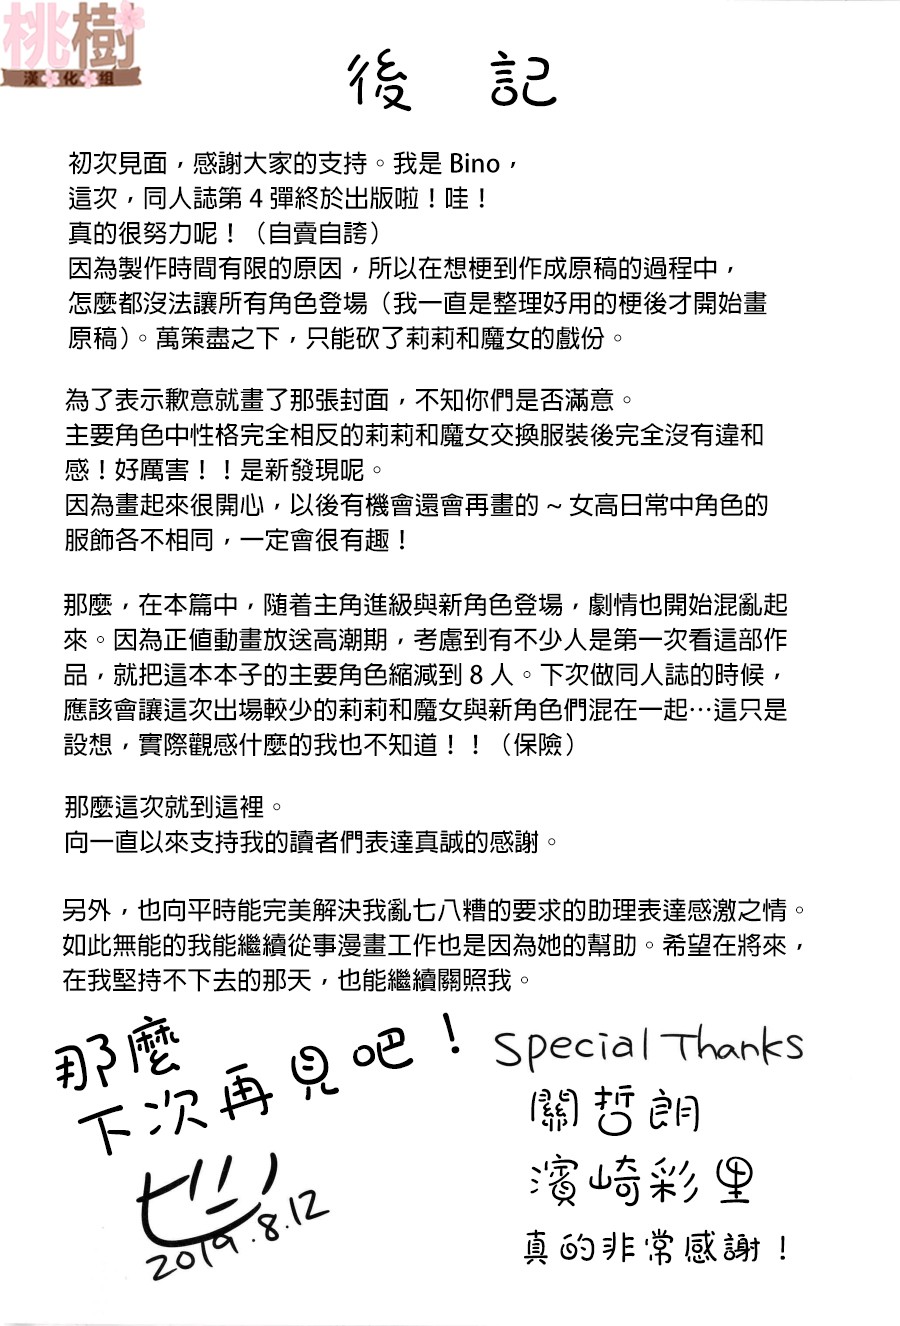 桃樹
漢化組
後 記
初次見面，感謝大家的支持。我是 Bino，
這次，同人誌第 4 彈終於出版啦！哇！
真的很努力呢！（自賣自誇）
因為製作時間有限的原因，所以在想梗到作成原稿的過程中，
怎麼都沒法讓所有角色登場（我一直是整理好用的梗後才開始畫
原稿）。萬策盡之下，只能砍了莉莉和魔女的戲份。
為了表示歉意就畫了那張封面，不知你們是否滿意。
主要角色中性格完全相反的莉莉和魔女交換服裝後完全沒有違和
感！好厲害！！是新發現呢。
因為畫起來很開心，以後有機會還會再畫的 ~ 女高日常中角色的
服飾各不相同，一定會很有趣！
那麼，在本篇中，隨着主角進級與新角色登場，劇情也開始混亂起
來。因為正值動畫放送高潮期，考慮到有不少人是第一次看這部作
品，就把這本本子的主要角色縮減到 8 人。下次做同人誌的時候，
應該會讓這次出場較少的莉莉和魔女與新角色們混在一起…這只是
設想，實際觀感什麼的我也不知道！！（保險）
那麼這次就到這裡。
向一直以來支持我的讀者們表達真誠的感謝。
另外，也向平時能完美解決我亂七八糟的要求的助理表達感激之情。
如此無能的我能繼續從事漫畫工作也是因為她的幫助。希望在將來，
在我堅持不下去的那天，也能繼續關照我。
那麼
下次再見吧！
ビーノ
2019.8.12
Special Thanks
關哲朗
濱崎彩里
真的非常感謝！